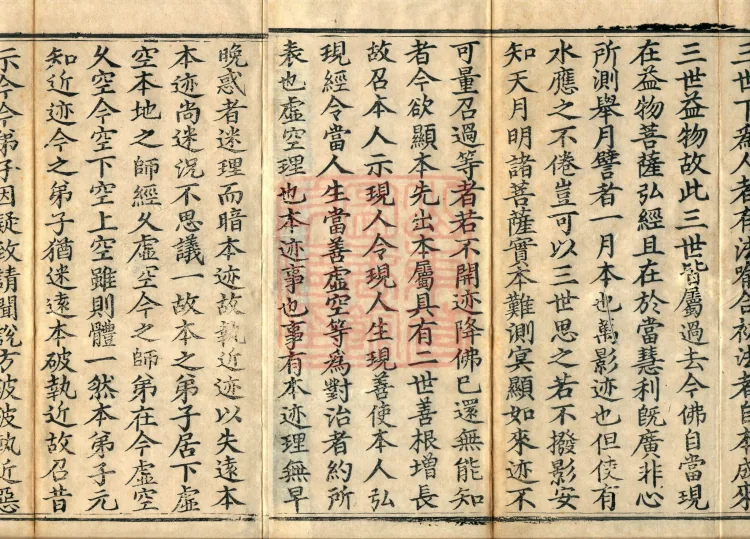 三世下爲人者有法譬合初法者即本應來
三世益物故此三世皆屬過去今佛自當現
在益物菩薩弘經且在於當慧利既廣非心
所測舉月譬者一月本也萬影迹也但使有
水應之不倦豈可以三世思之若不撥影安
知天月明諸菩薩實本難測冥顯如來迹不
可量召過等者若不開迹降佛已還無能知
者今欲顯本先出本屬具有二世善根增長
故召本人示現人令現人生現善使本人弘
現經令當人生當善虛空等爲對治者約所
表也虛空理也本迹事也事有本迹理無早
晚惑者迷理而暗本迹故執近迹以失遠本
本迹尚迷況不思議一故本之弟子居下虛
空本地之師經久虛空今之師弟在今虛空
久空今空下空上空雖則體一然本弟子元
知近迹今之弟子猶迷遠本破執近故召昔
示今今弟子因疑致請聞說方破破執近惡